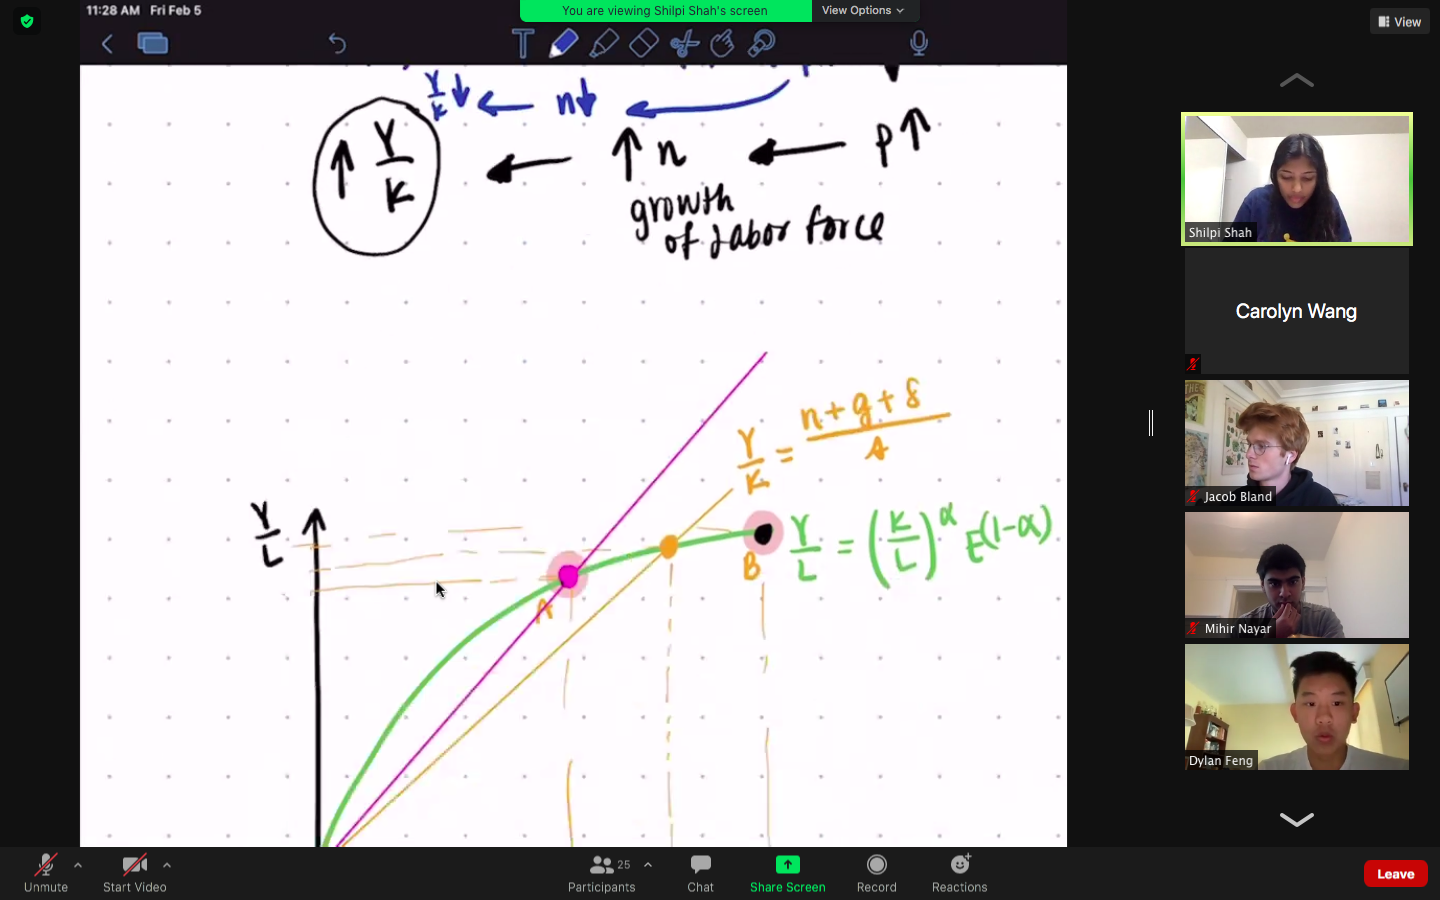 11:28 AM Fri Feb 5
You are viewing Shilpi Shah's screen
View Options
View
Y/K ↓ ← n↓ ←
↑ Y/K ← ↑ n ← p↑
growth
of labor force
Y/K = n+g+δ/s
Y/L
A
B
Y/L = (K/L)^α E^(1-α)
Shilpi Shah
Carolyn Wang
Jacob Bland
Mihir Nayar
Dylan Feng
Unmute
Start Video
Participants
25
Chat
Share Screen
Record
Reactions
Leave